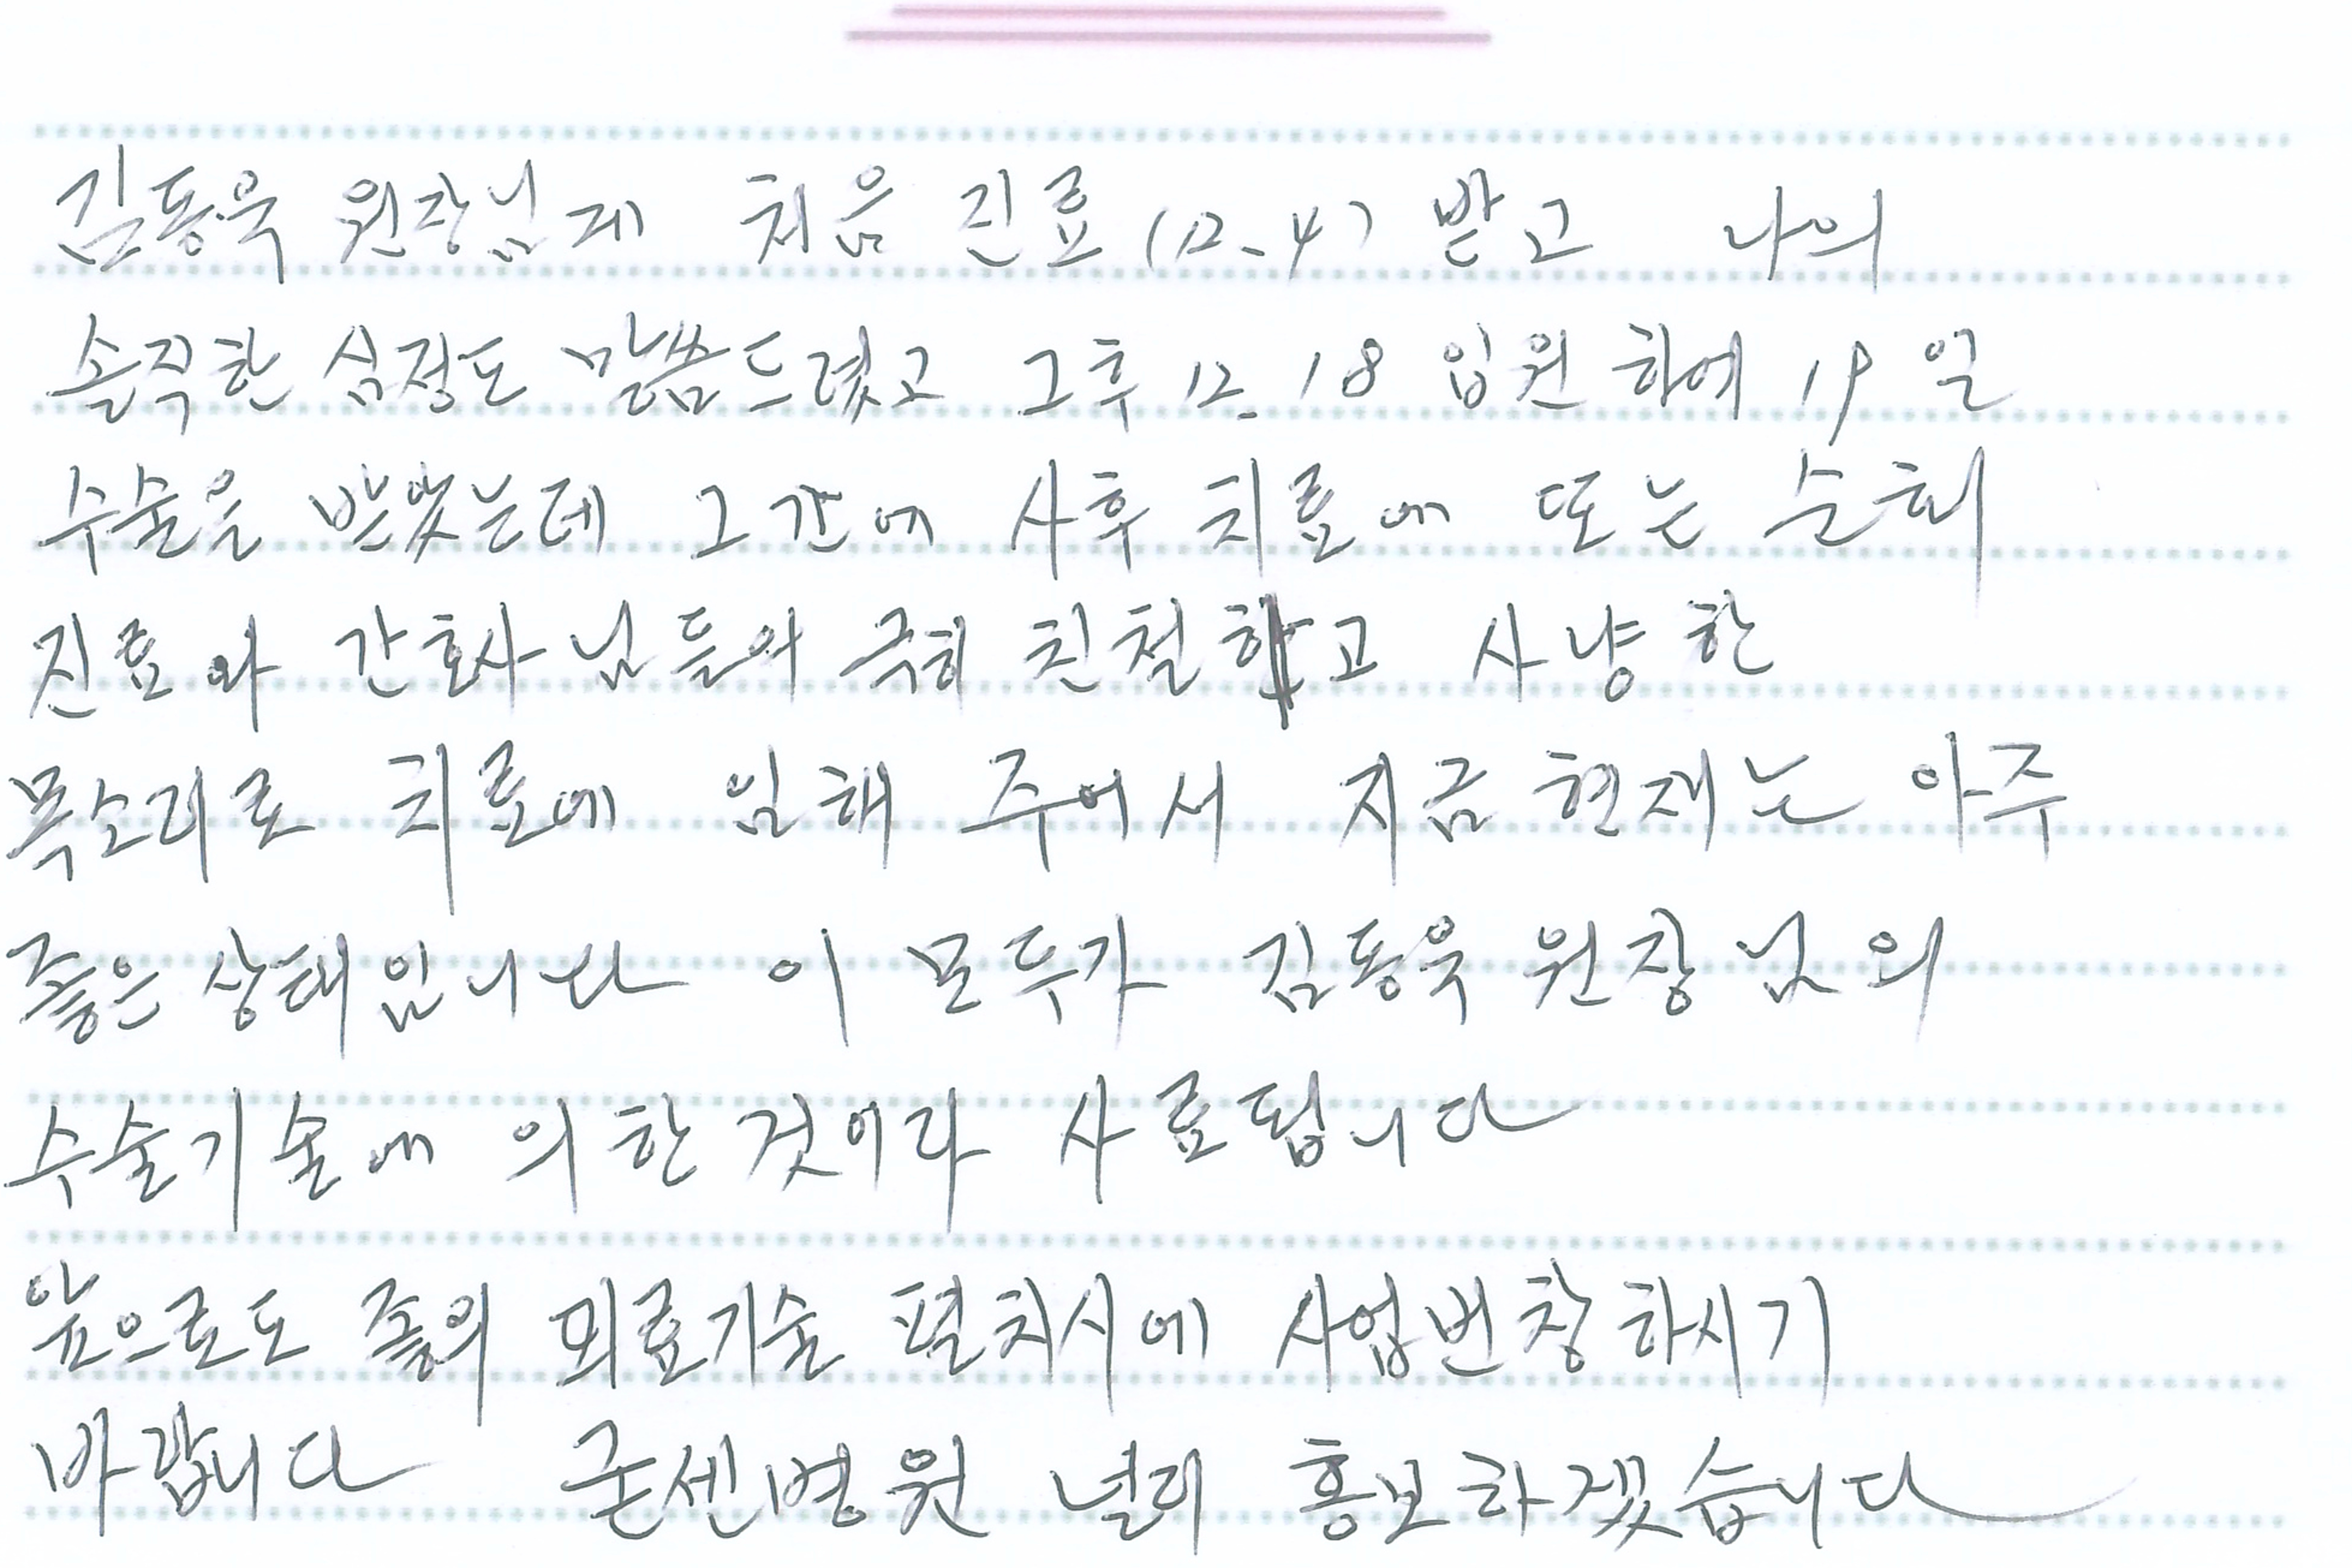 김동욱 원장님게 처음 진료(12.4) 받고 나의
솔직한 심정도 말씀드렸고 그후 12.18 입원 하에 19일
수술을 받았는데 그간에 사후 치료에 또는 순회
진료와 간호사님들의 극히 친절하고 사냥한
목소리로 치료에 임해 주어서 지금 현재는 아주
좋은 상태입니다 이 모두가 김동욱 원장님의
수술기술에 의한 것이라 사료됩니다
앞으로도 의료기술 펼치시에 사업번창하시기
바랍니다 굳센병원 널리 홍보하겠습니다